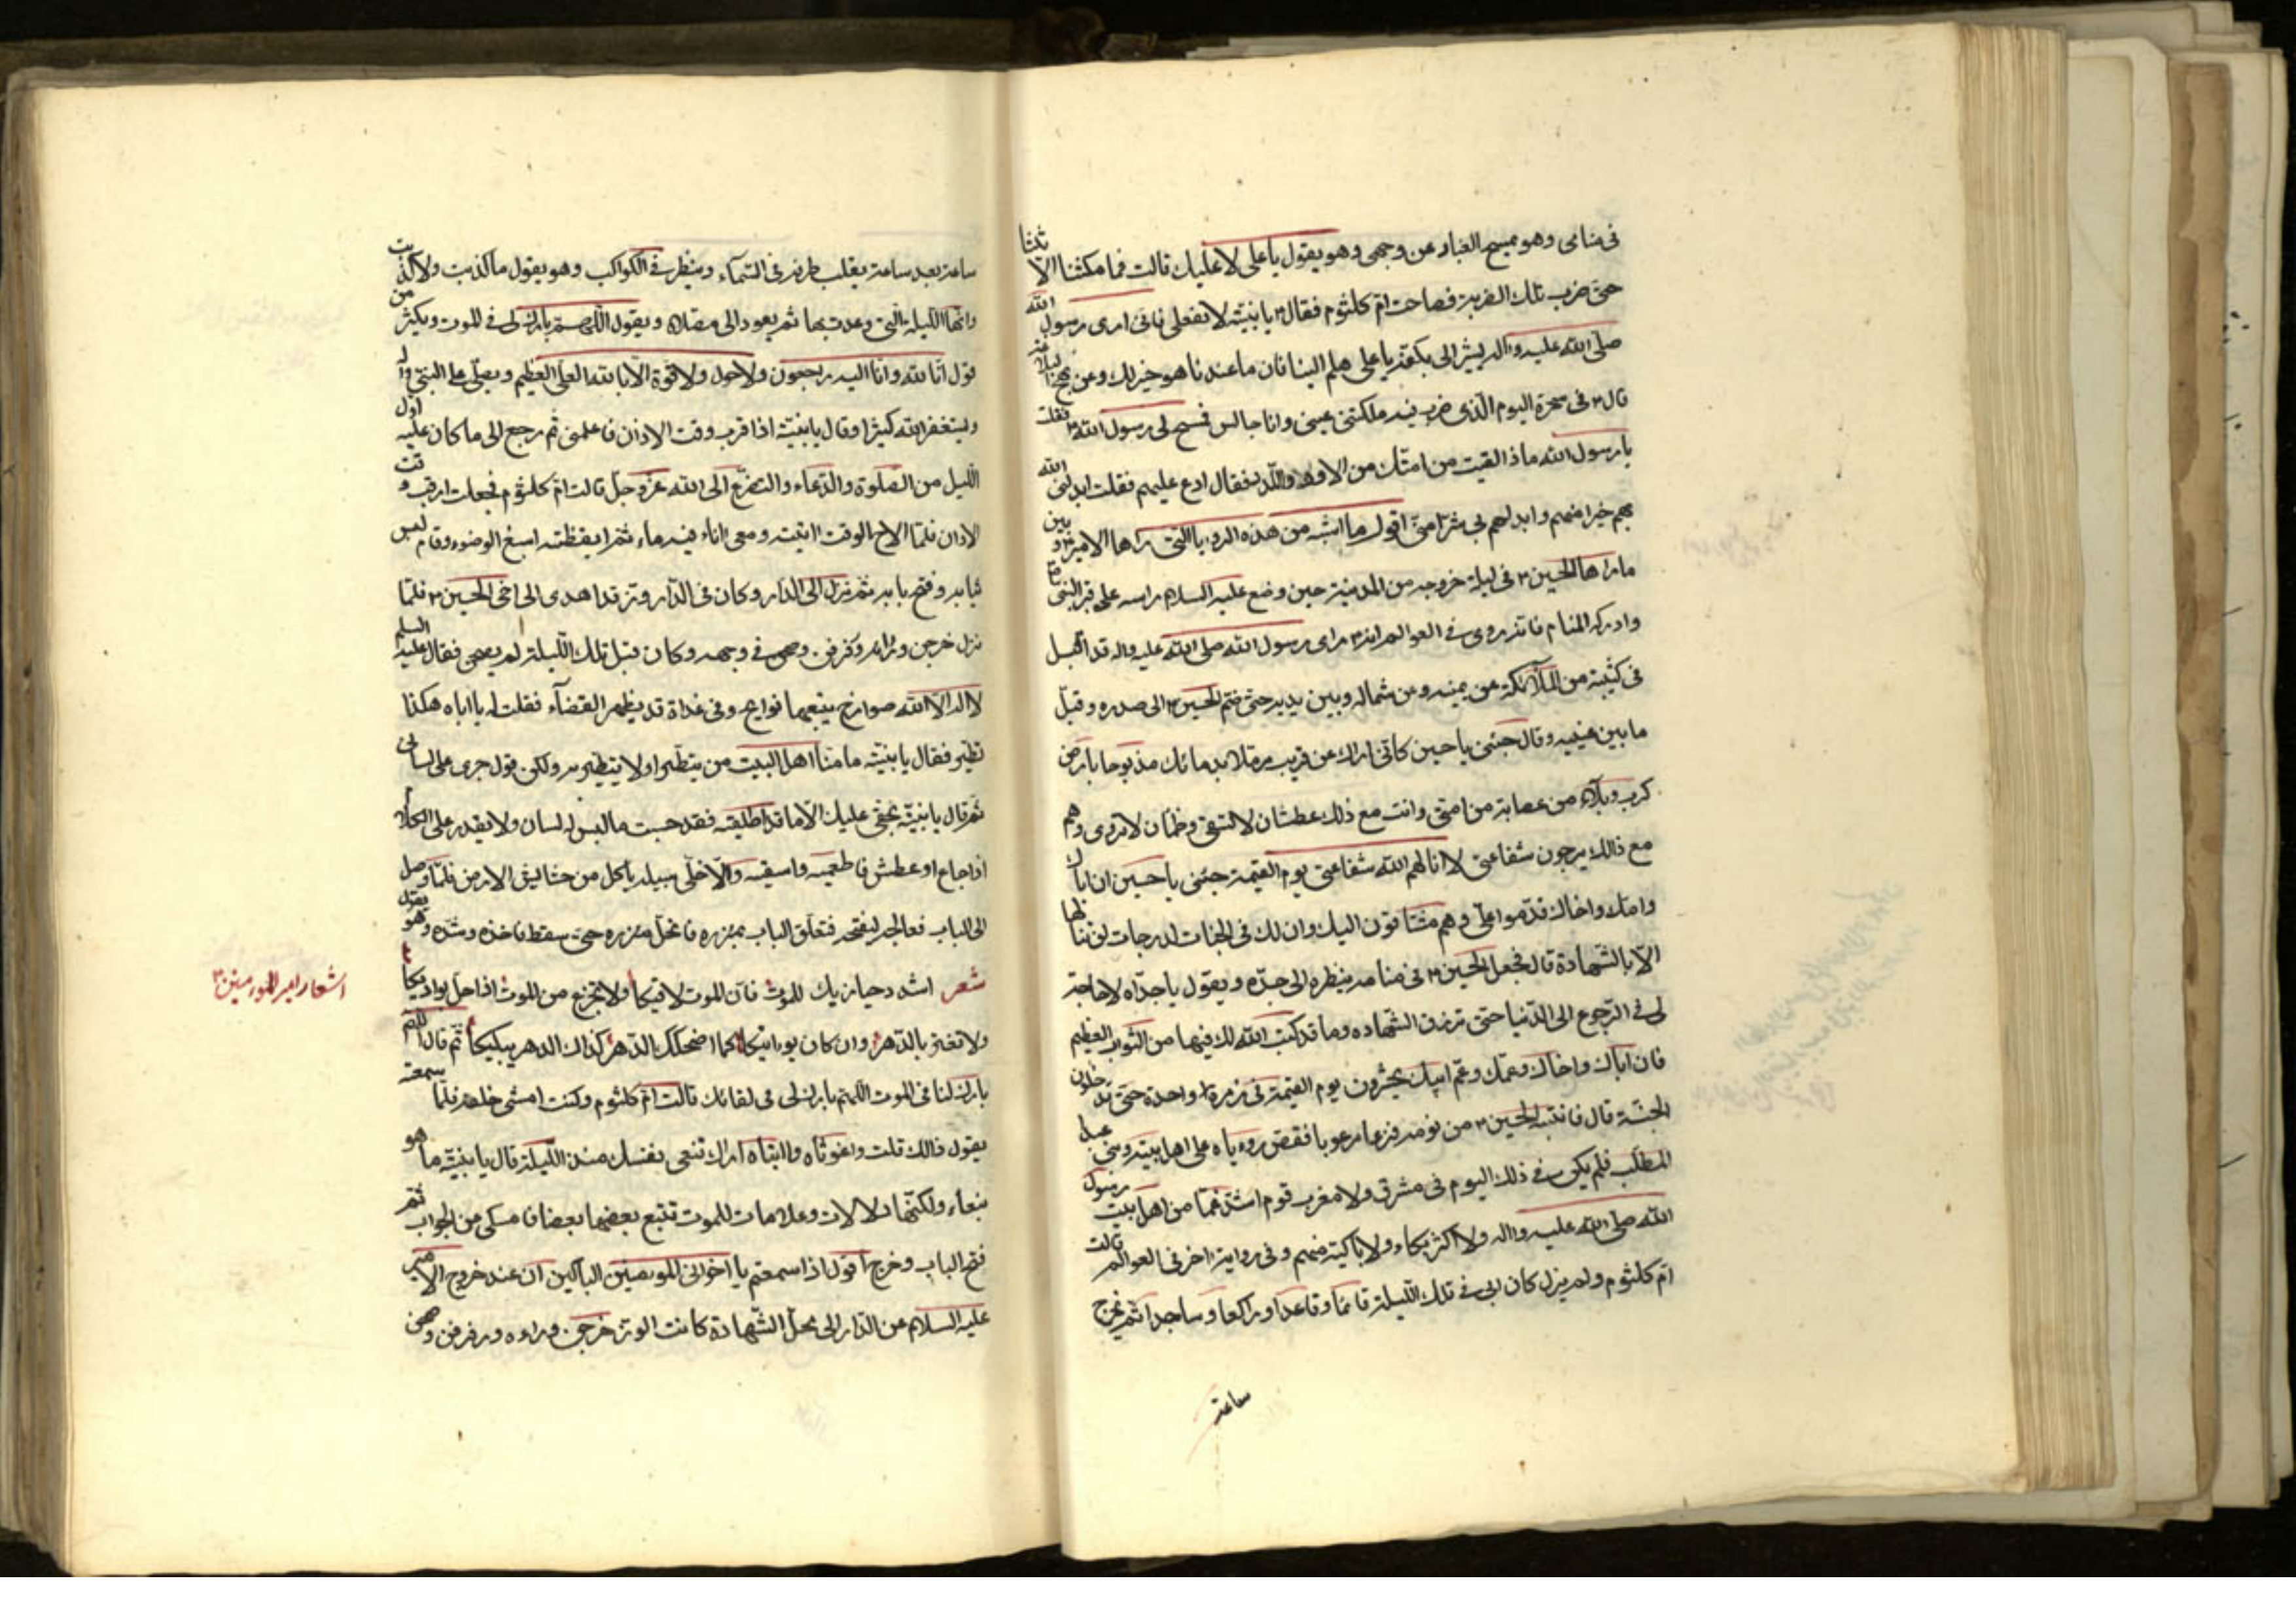 فى منامى وهو يمسح الغبار عن وجهى وهو يقول يا على لا عليك قالت فما مكثنا الا ثلثا
حتى ضرب تلك الضربة فصاحت ام كلثوم فقال ع يا بنيته لا تفعلى فانى ارى رسول الله
صلى الله عليه واله يشير الى بكفه يا على هلم الينا فان ما عندنا هو خير لك وعن نهج البلاغه
قال ع فى سحرة اليوم الذى ضرب فيه ملكتنى عينى وانا جالس فسنح لى رسول الله ص فقلت
يا رسول الله ماذا لقيت من امتك من الاود واللدد فقال ادع عليهم فقلت ابدلنى الله
بهم خيرا منهم وابدلهم بى شرا منى اقول ما اشبه من هذه الرويا التى راها الامير ع و بين
ما راها الحسين ع فى ليلة خروجه من المدينة حين وضع عليه السلام راسه على قبر النبى
وادركه المنام فانه روى فى العوالم انه ع راى رسول الله صلى الله عليه واله قد اقبل
فى كتيبة من الملآئكة عن يمينه وعن شماله وبين يديه حتى ضم الحسين ع الى صدره وقبل
ما بين عينيه وقال حبيبى يا حسين كانى اراك عن قريب مرملا بدمائك مذبوحا بارض
كرب وبلاء من عصابة من امتى وانت مع ذلك عطشان لا تسقى وظمان لا تروى وهم
مع ذالك يرجون شفاعتى لا انالهم الله شفاعتى يوم القيمة حبيبى يا حسين ان اباك
وامك واخاك قدموا على وهم مشتاقون اليك وان لك فى الجنات لدرجات لن تنالها
الا بالشهادة قال فجعل الحسين ع فى منامه ينظره الى جده ويقول يا جداه لا حاجة
لى فى الرجوع الى الدنيا حتى ترزق الشهاده وما قد كتب الله لك فيها من الثوب العظيم
فان اباك واخاك وعمك وعم ابيك يحشرون يوم القيمة فى زمرة واحدة حتى يدخلون
الجنة قال فانتبه الحسين ع من نومه فزعا مرعوبا فقص روياه على اهل بيته وبنى عبد
المطلب فلم يكن فى ذلك اليوم فى مشرق ولا مغرب قوم اشد غما من اهل بيت رسول
الله صلى الله عليه واله ولا اكثر بكاء ولا باكية منهم وفى رواية اخر فى العوالم قالت
ام كلثوم ولم يزل كان ابى فى تلك الليلة قائما وقاعدا وراكعا وساجدا ثم يخرج
ساعة
ساعة بعد ساعة يقلب طرفه فى السمآء وينظر فى الكواكب وهو يقول ما كذبت ولا كذبت
وانها الليلة التى وعدت بها ثم يعود الى مصلاه ويقول اللهم بارك لى فى الموت ويكثر من
قول انا لله وانا اليه راجعون ولا حول ولا قوة الا بالله العلى العظيم ويصلى على النبى واله
ويستغفر الله كثيرا وقال يا بنيته اذا قرب وقت الاذان فاعلمنى ثم رجع الى ما كان عليه اول
الليل من الصلوة والدعاء والتضرع الى الله عز وجل قالت ام كلثوم فجعلت ارقب وقت
الاذان فلما لاح الوقت اتيته ومعى اناء فيه ماء ثم ايقظته اسبغ الوضوء وقام لبس
ثيابه وفتح بابه ثم نزل الى الدار وكان فى الدار وز قد اهدى الى اخى الحسين ع فلما
نزل خرجن وراءه ورفرفن وصحن فى وجهه وكان قبل تلك الليلة لم يصحن فقال عليه السلم
لا اله الا الله صوارخ يتبعها نوايح وفى غداة قد يظهر القضآء فقلت له يا اباه هكذا
تطير فقال يا بنيته ما منا اهل البيت من يتطير اولا يتطير به ولكن قول جرى على لسانى
ثم قال يا بنيته بحقى عليك الا ما قد اطلقيه فقد حبست ما ليس له لسان ولا يقدر على الكلام
اذا جاع او عطش فاطعميه واسقيه والا خلى سبيله ياكل من حشايش الارض فلما وصل
الى الباب فعالجه ليفتحه فتعلق الباب بمئزره فانحل مئزره حتى سقط فاخذه وشده وهو يقول
شعر اشدد حيازيمك للموت فان الموت لاقيكا ولا تجزع من الموت اذا حل بواديكا
ولا تغتر بالدهر وان كان يواتيكا كما اضحكك الدهر كذاك الدهر يبكيكا ثم قال اللهم
بارك لنا فى الموت اللهم بارك لى فى لقائك قالت ام كلثوم وكنت امشى خلفه فلما سمعته
يقول ذالك قلت واغوثاه وا ابتاه اراك تنعى نفسك منذ الليلة قال يا بنيته ما هو
بنعاء ولكنها دلالات وعلامات للموت تتبع بعضها بعضا فامسكى عن الجواب ثم
فتح الباب وخرج اقول اذا سمعتم يا اخوانى المومنين الباكين ان عند خروج الامير
عليه السلام من الدار الى محل الشهادة كانت الوز خرجن وراءه ورفرفن وصحن
اشعار امير المومنين ع